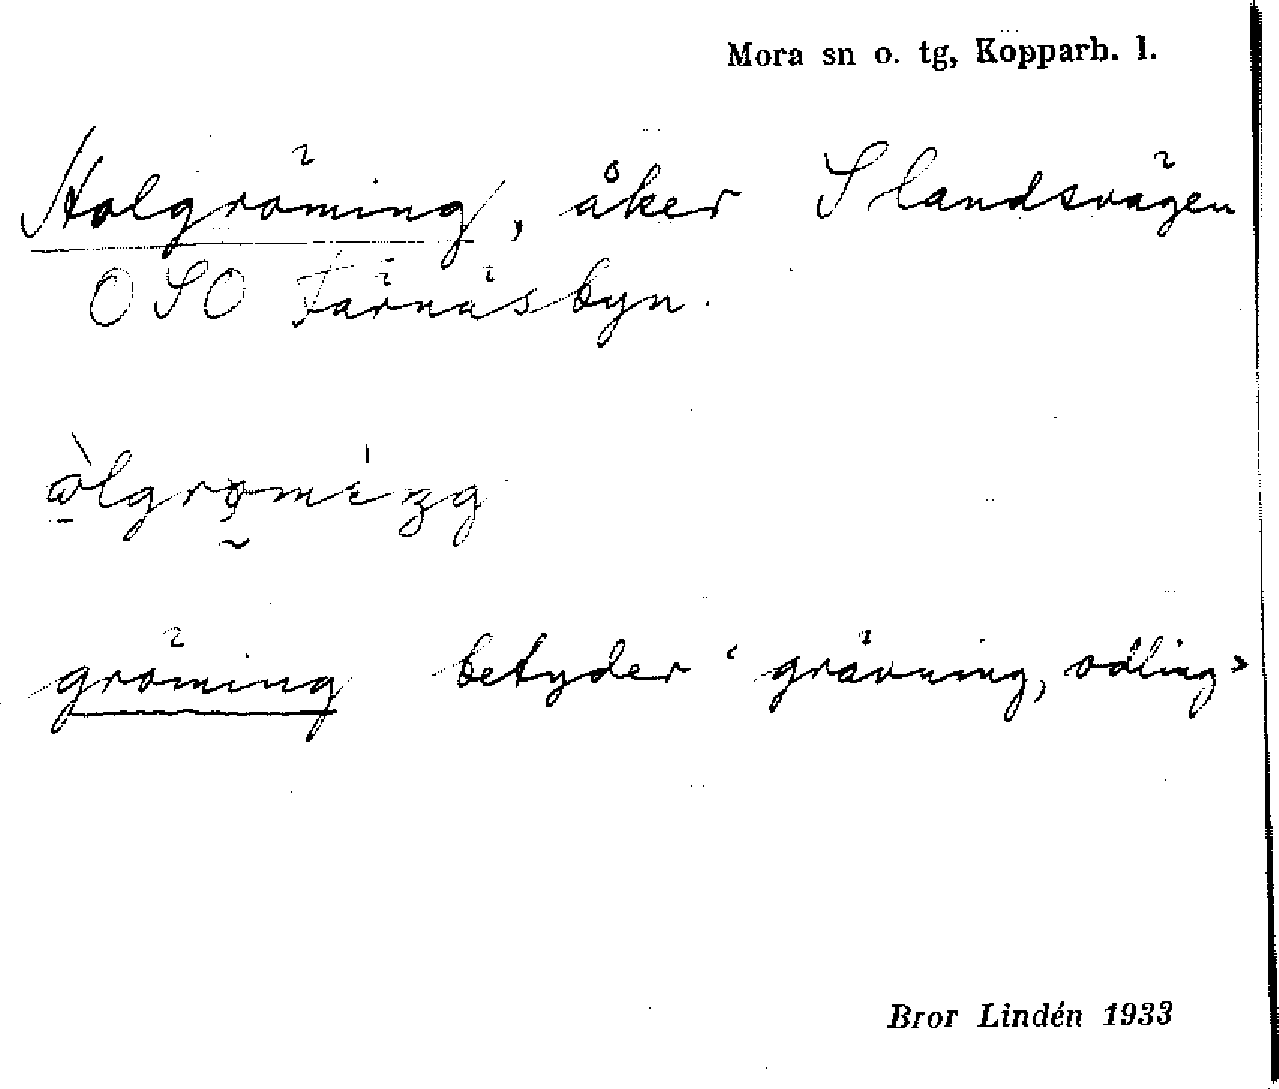 Mora sn o. tg, Kopparb. l.
Holgröming, åker S landsvägen
OSO Färnäsbyn.
gröming betyder 'grävning, odling'
Bror Lindén 1933